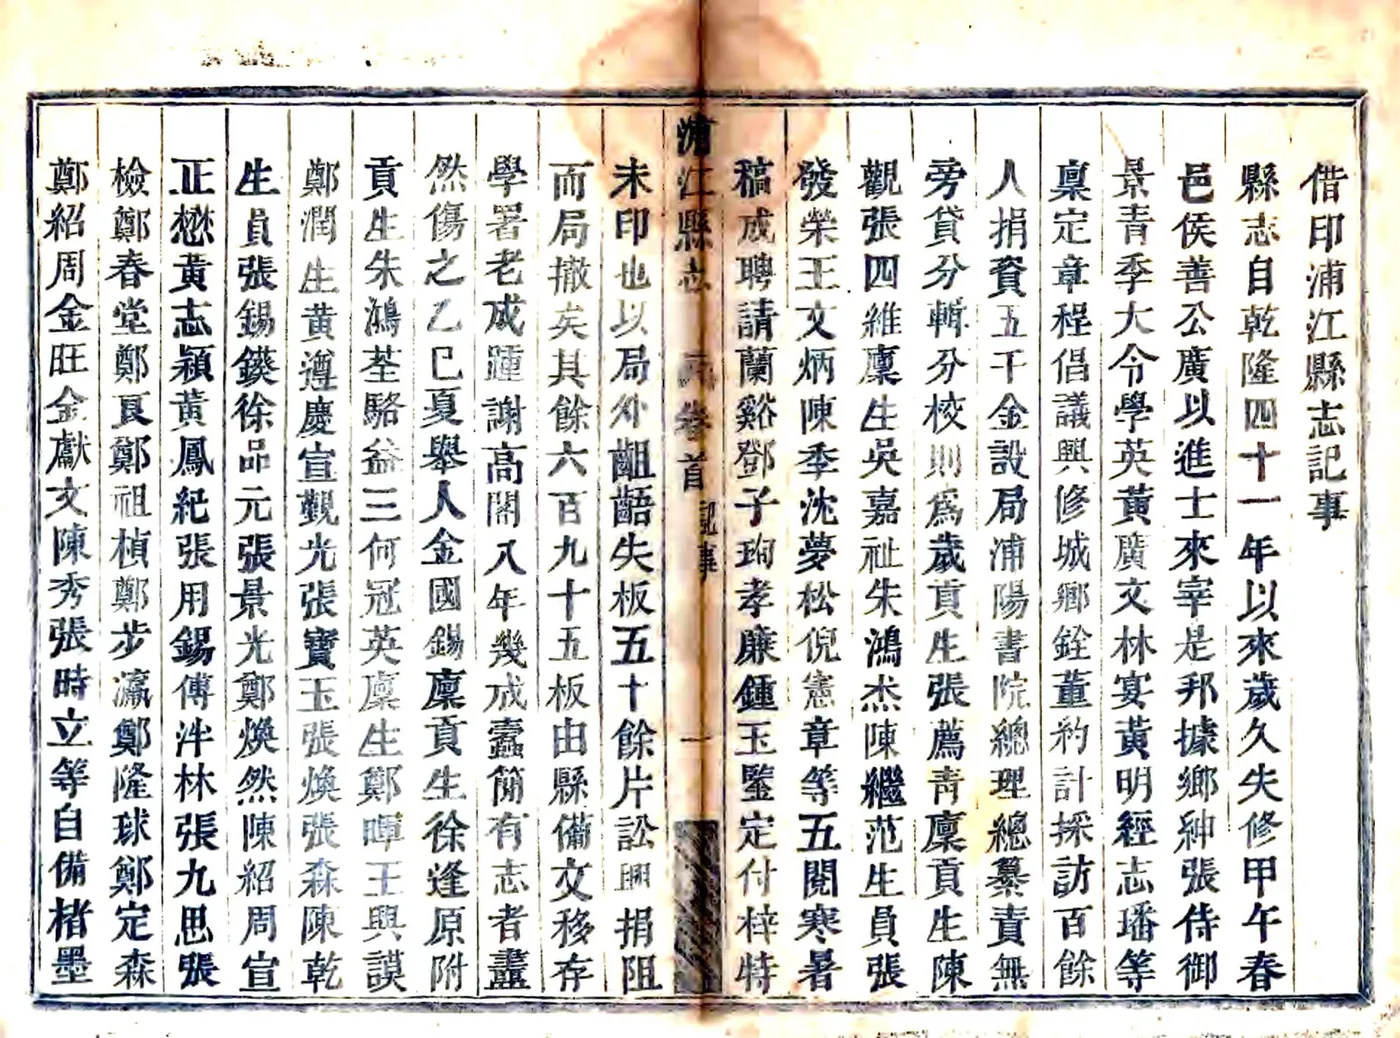 借印浦江縣志記事
縣志自乾隆四十一年以來歲久失修甲午春
邑侯善公廣以進士來宰是邦據鄉紳張侍御
景青季大令學英黃廣文林宴黃明經志璠等
稟定章程倡議興修城鄉銓董約計採訪百餘
人捐資五千金設局浦陽書院總理總纂責無
旁貸分輯分校則為歲貢生張薦青廩貢生陳
觀張四維廩生吳嘉祉朱鴻杰陳繼范生員張
發榮王文炳陳季沈夢松倪憲章等五閱寒暑
稿成聘請蘭谿鄧子珣孝廉鍾玉鑒定付梓特
浦江縣志 卷首 記事 一
未印也以局外齟齬失板五十餘片訟興捐阻
而局撤矣其餘六百九十五板由縣備文移存
學署老成踵謝高閣八年幾戒蠹簡有志者盡
然傷之乙巳夏舉人金國錫廩貢生徐逢原附
貢生朱鴻荃駱益三何冠英廩生鄭暉王興謨
鄭潤生黃遵慶宣覲光張寶玉張煥張森陳乾
生員張錫鏌徐品元張景光鄭煥然陳紹周宣
正懋黃志穎黃鳳紀張用錫傅泮林張九思張
檢鄭春堂鄭艮鄭祖楨鄭步瀛鄭隆球鄭定森
鄭紹周金旺金獻文陳秀張時立等自備楮墨